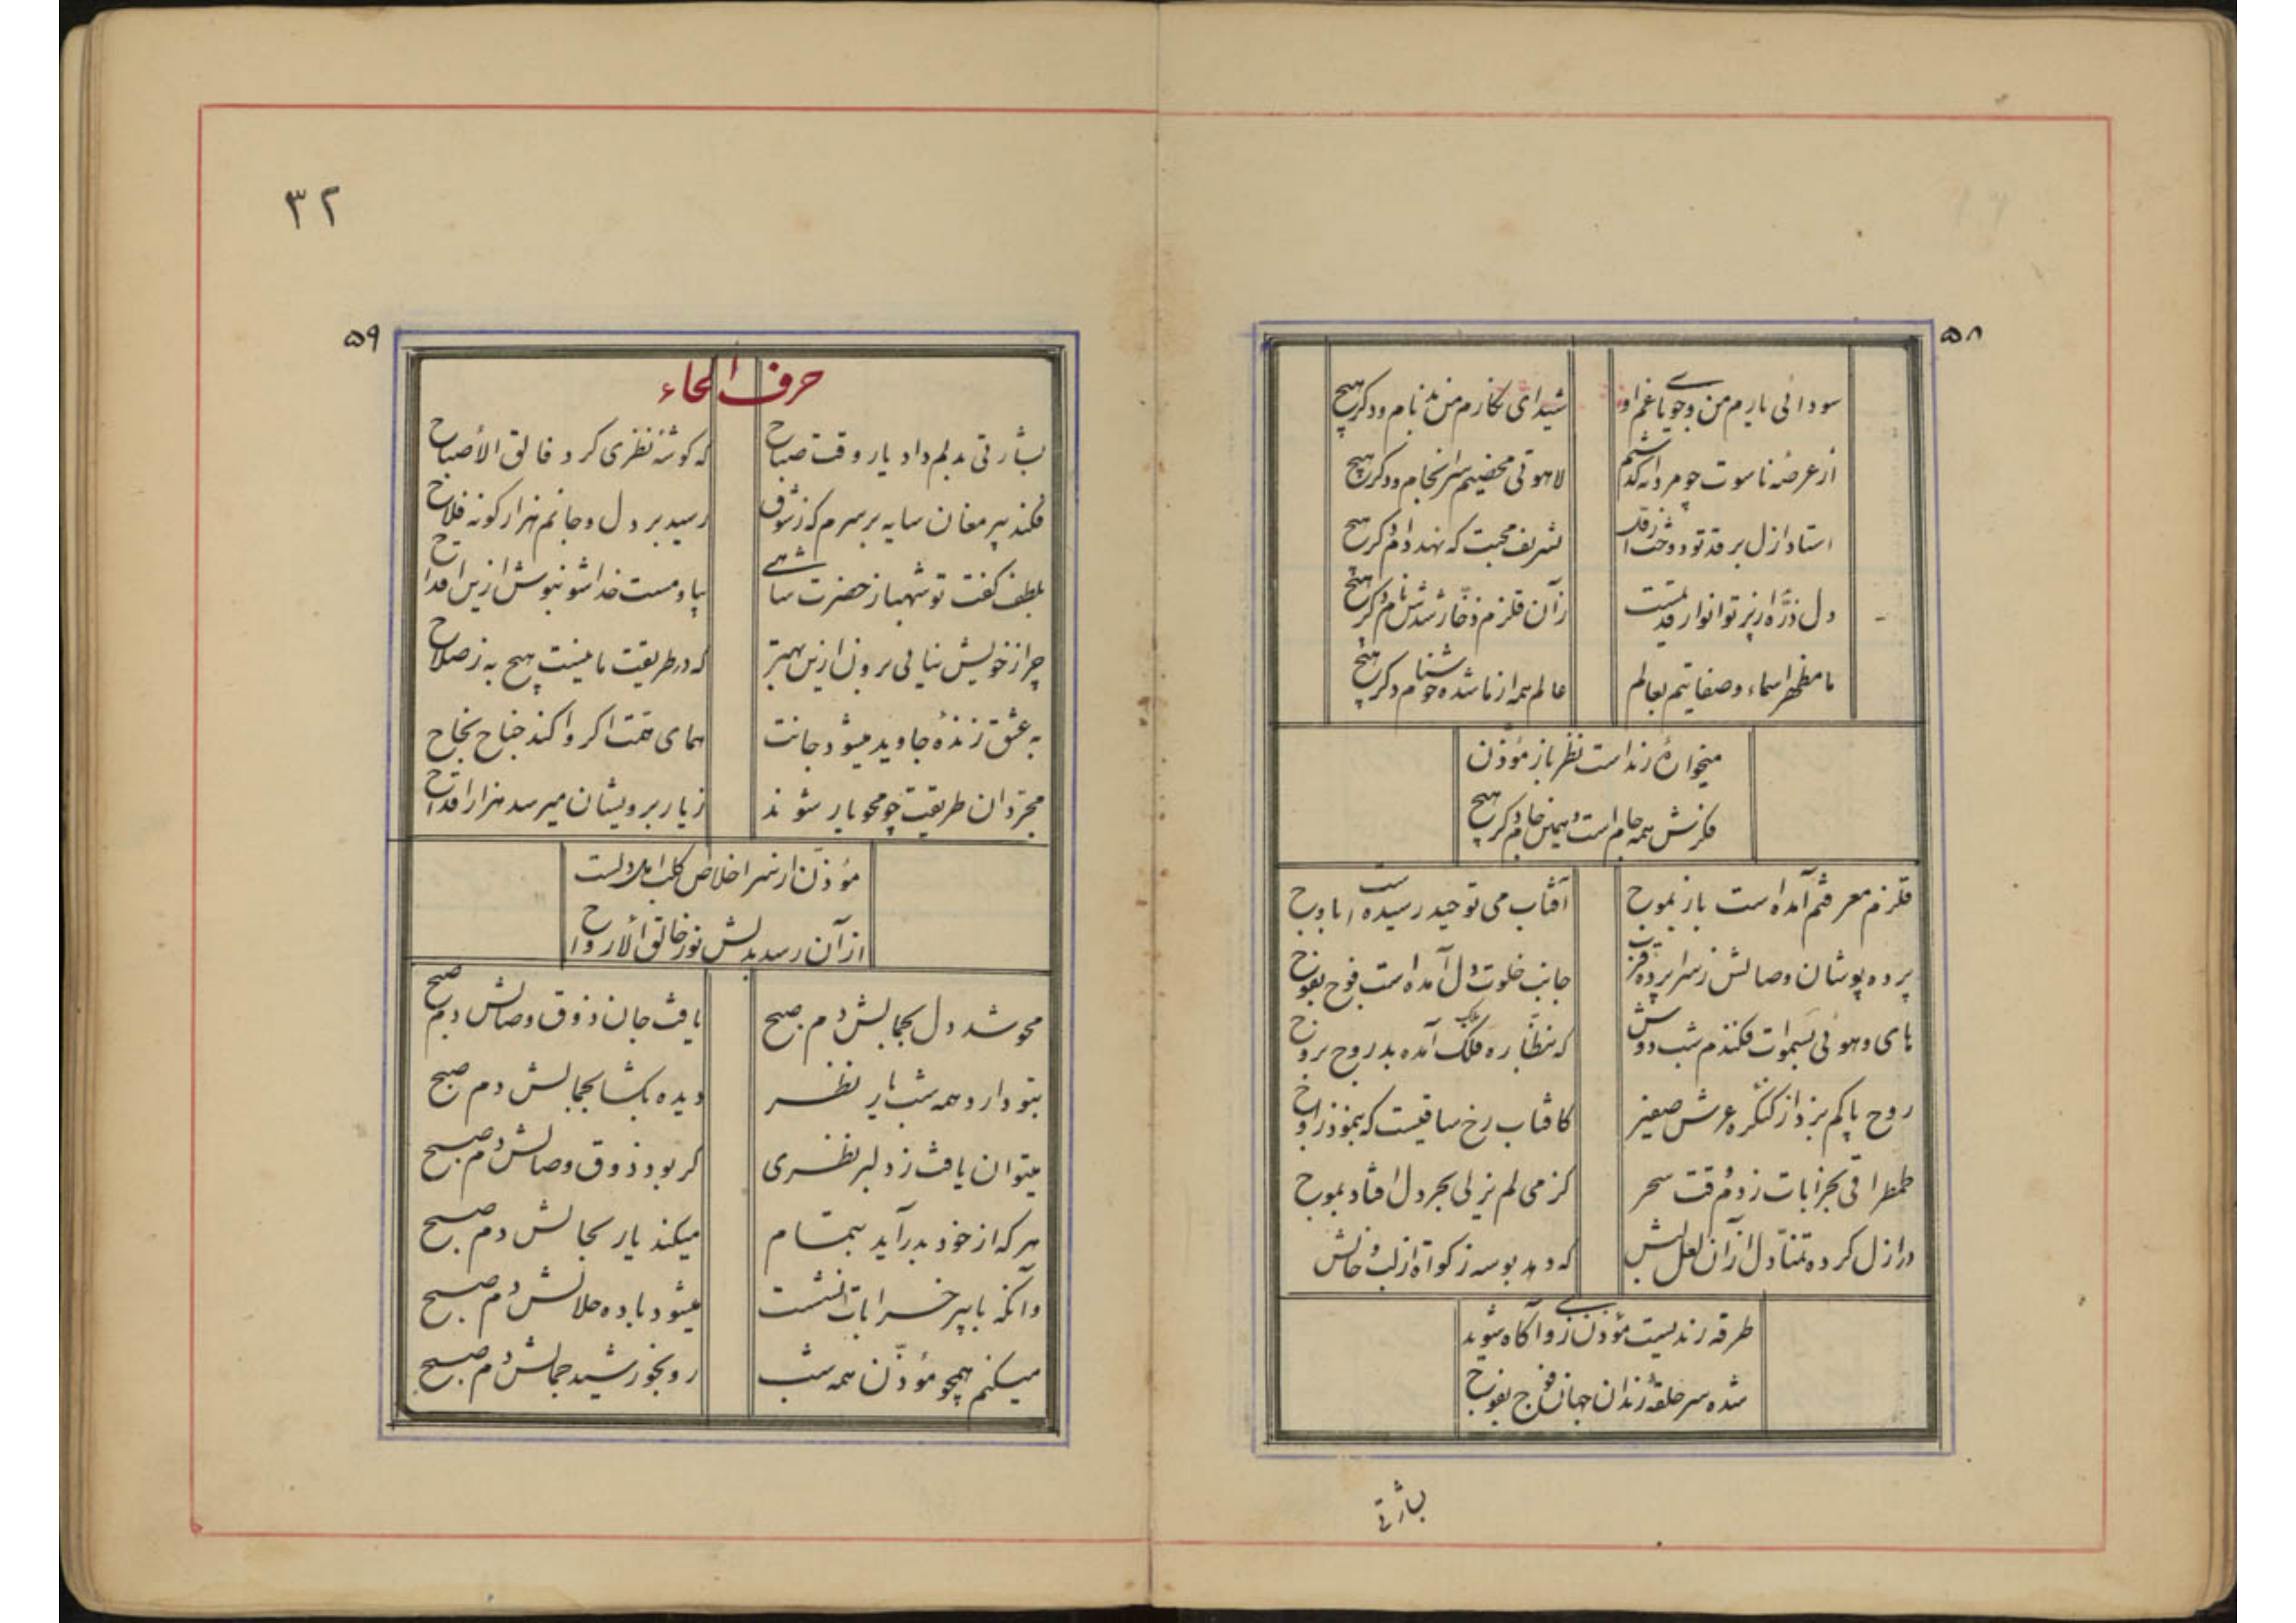 ۵۸
سودائی یاریم من و جویای غم او
شیدای نگارم من بدنام و دگر هیچ
از عرصه ناسوت چو مردانه گذشتیم
لاهوتی محضیم سرانجام و دگر هیچ
استاد ازل بر قد تو دوخت از قد
تشریف محبت که نهد دام و دگر هیچ
دل ذره از پرتو انوار قدیمست
زآن قلزم ذخار شدش نام و دگر هیچ
ما مظهر اسماء و صفاتیم بعالم
عالم همه از ما شده خوشنام و دگر هیچ
میخواره رند است نظرباز مؤذن
فکرش همه جام است و همین جام و دگر هیچ
قلزم معرفتم آمده است باز بموج
آفتاب می توحید رسیده است باوج
پرده پوشان وصالش ز سراپرده قرب
جانب خلوت دل آمده است فوج بفوج
های و هوئی بسموات فکندم شب دوش
که بنظاره ملک آمده بد روح بروح
روح پاکم بزد از کنگره عرش صفیر
کافتاب رخ ساقیست که بنمود ز اوج
طمطراقی بخرابات زدم وقت سحر
کز می لم یزلی بحر دل افتاد بموج
در ازل کرده تمنا دل از آن لعل لبش
که دهد بوسه زکواة از لب و خالش
طرفه رندیست مؤذن ز وی آگاه شوید
شده سر حلقه رندان جهان فوج بفوج
بشارتی
۳۲
۵۹
حرف الحاء
بشارتی بدلم داد یار وقت صباح
که گوشه نظری کرد فالق الأصباح
فکند پیر مغان سایه بر سرم که ز شوق
رسید بر دل و جانم هزار گونه فلاح
بلطف گفت تو شهباز حضرت شاهی
بیا و مست خدا شو بنوش ازین اقداح
چرا ز خویش نیائی برون ازین بهتر
که در طریقت ما نیست هیچ به ز صلاح
به عشق زنده جاوید میشود جانت
همای همت اگر وا کند جناح نجاح
مجردان طریقت چو محو یار شوند
ز یار بر ویشان میرسد هزار اقداح
مؤذن از سر اخلاص کلب اهل دلست
از آن رسد بدلش نور خالق الأرواح
محو شد دل بجمالش دم صبح
یافت جان ذوق وصالش دم صبح
بتو دارد همه شب یار نظر
دیده بگشا بجمالش دم صبح
میتوان یافت ز دلبر نظری
گر بود ذوق وصالش دم صبح
هر که از خود بدر آید بتمام
میکند یار بحالش دم صبح
وآنکه با پیر خرابات نشست
میشود باده حلالش دم صبح
میکنم همچو مؤذن همه شب
رو بخورشید جمالش دم صبح